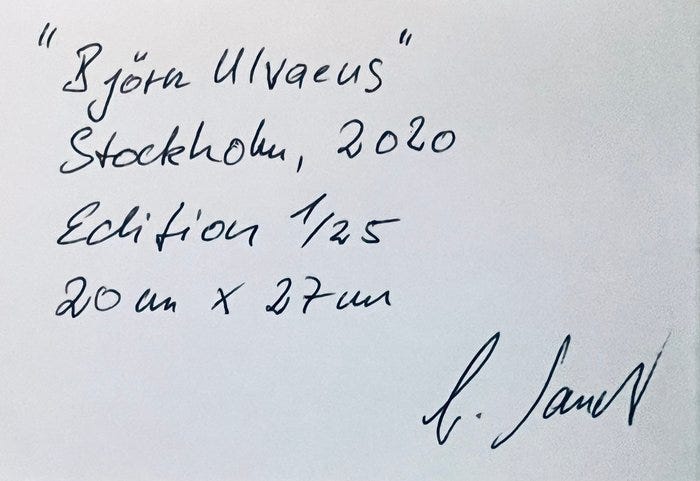 "Björn Ulvaeus"
Stockholm, 2020
Edition 1/25
20 cm x 27 cm